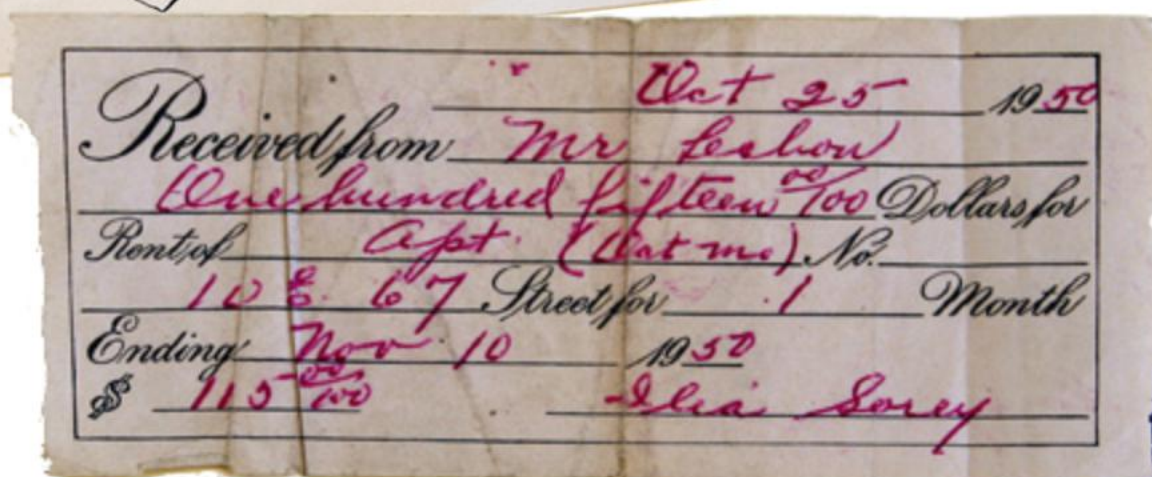 Oct 25 1950
Received from Mr Lebow
One hundred fifteen 00/100 Dollars for
Rent of Apt. (Last mo) No.
10 E. 67 Street for 1 Month
Ending Nov 10 1950
$ 115 00/100 Sorey